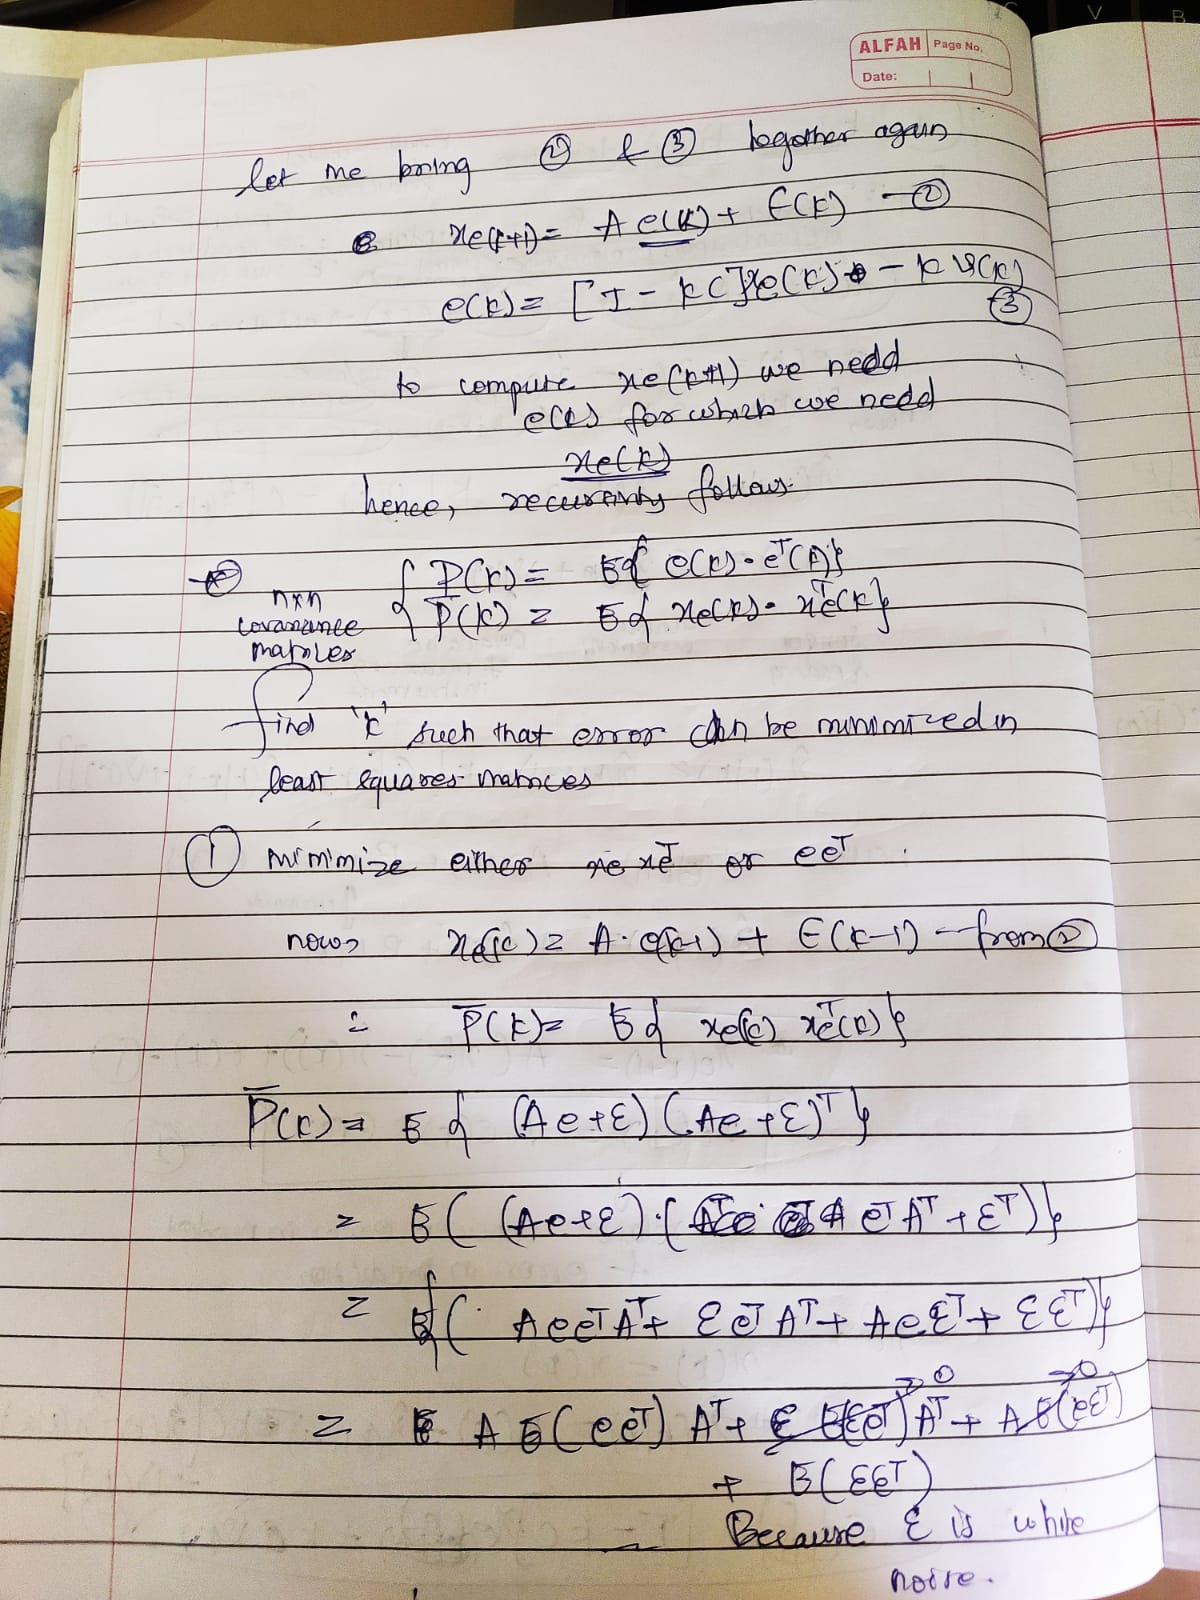 ALFAH Page No.
Date:
let me bring ② & ③ together again
xe(k+1) = A e(k) + E(k) — ②
e(k) = [I - KC]xe(k) - K v(k)
③
to compute xe(k+1) we nedd
e(k) for which we need
xe(k)
hence, follows.
P(k) = E{ e(k) · eᵀ(k)}
n×n
P̄(k) = E{ xe(k) · xeᵀ(k)}
covariance
matrices
find 'k' such that error can be minimized in
least squares matrices
① minimize either xe xeᵀ or eeᵀ
now, xe(k) = A · e(k-1) + E(k-1) — from ②
∴ P̄(k) = E{ xe(k) xeᵀ(k)}
P̄(k) = E{ (Ae+ε) (Ae+ε)ᵀ}
= E( (Ae+ε) · ( eᵀAᵀ + εᵀ)}
= E( AeeᵀAᵀ + εeᵀAᵀ + Aeεᵀ + εεᵀ)}
= A E(eeᵀ) Aᵀ + E(εeᵀ)Aᵀ + A E(eεᵀ)
+ E(εεᵀ)
Because ε is white
noise.